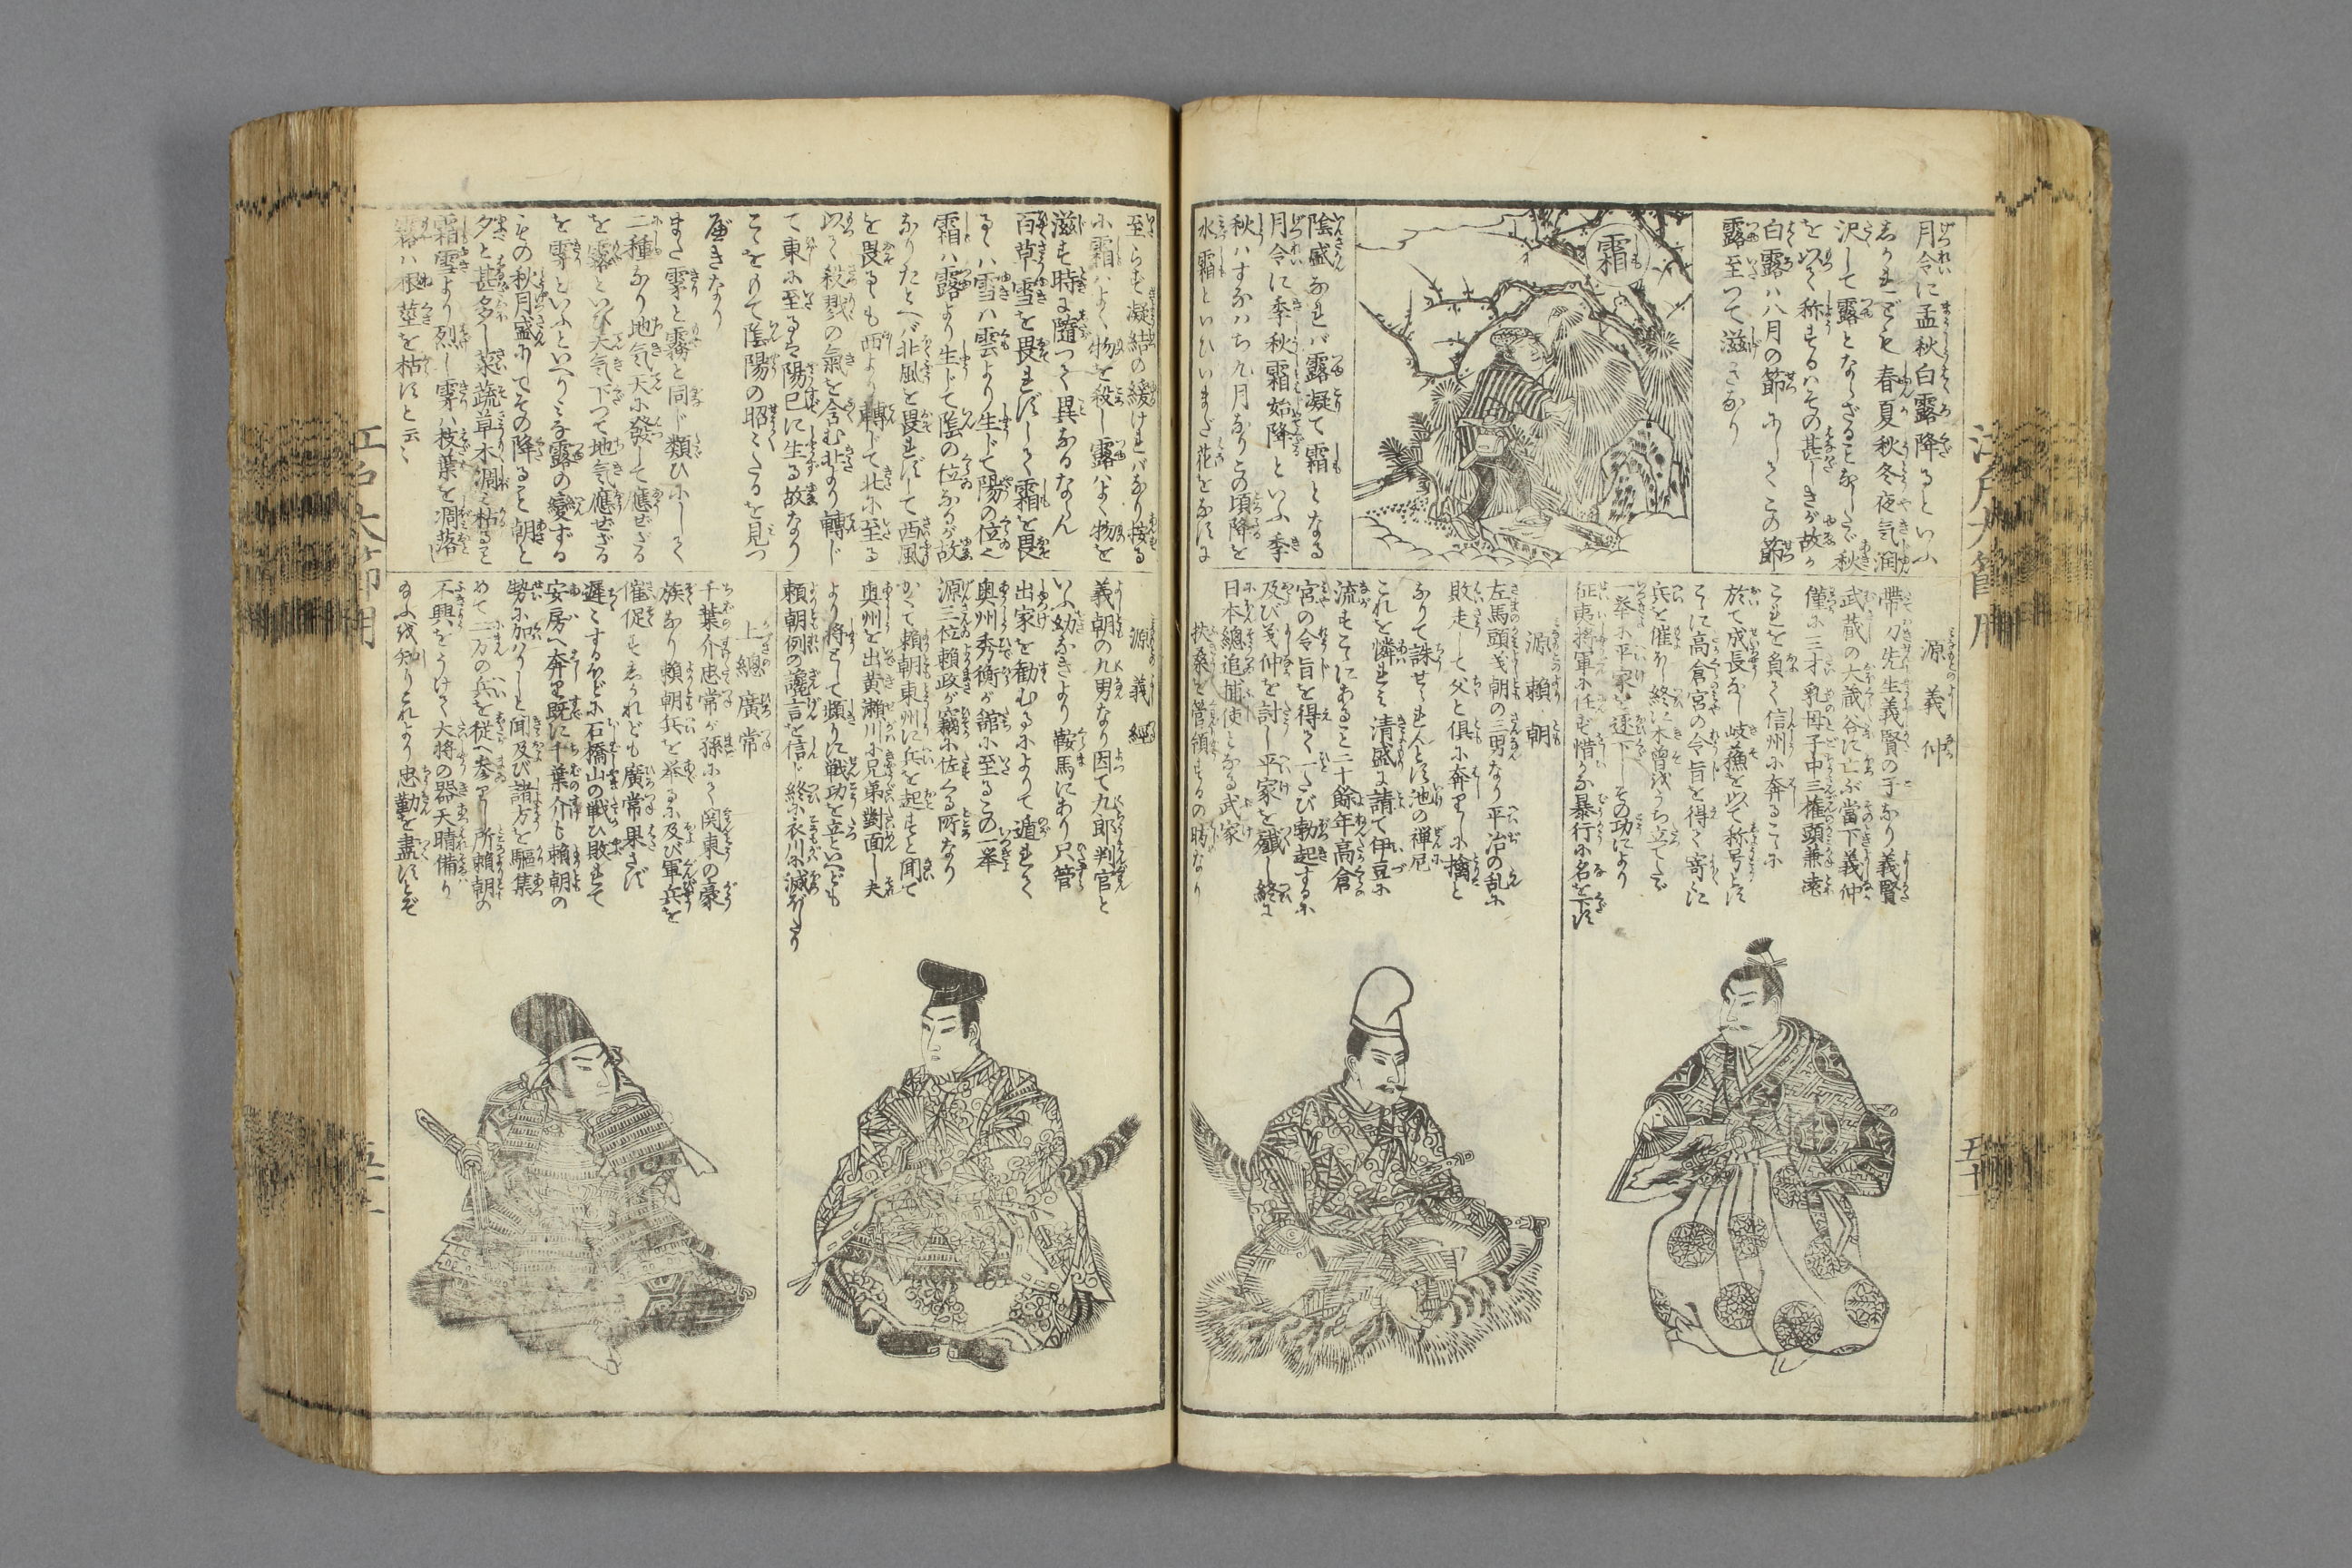 月令に孟秋白露降るといふ
しかれども春夏秋冬夜気潤
沢して露とならざることなしたゞ秋
を以て称するハその甚しきが故か
白露ハ八月の節にしてこの節
露至つて滋きなり
霜
陰盛なれバ露凝て霜となる
月令に季秋霜始降といふ季
秋ハすなハち九月なりこの頃降を
水霜といひいまだ花をなすに
源義仲
帯刀先生義賢の子なり義賢
武蔵の大蔵谷に亡ぶ當下義仲
僅に三才乳母子中三権頭兼遠
これを負て信州に奔るこゝに
於て成長なし岐蘓を以て称号とす
こゝに高倉宮の令旨を得て
兵を催し終に木曽をうち立てたゞ
一挙に平家を逐下しその功により
征夷将軍に任ず惜かな暴行に名を下す
源頼朝
左馬頭義朝の三男なり平治の乱に
敗走して父と倶に奔りしに擒と
なりて誅せられんとす池の禅尼
これを憐れミ清盛に請て伊豆に
流すこゝにあること二十餘年高倉
宮の令旨を得て一たび勃起するに
及び義仲を討し平家を殱し終に
日本總追捕使となる武家
扶桑を管領するの時なり
至らず凝結の緩けれバなり按る
に霜ハよく物を殺し露ハよく物を
滋す時に隨つて異なるならん
百草雪を畏れずして霜を畏
るゝハ雪ハ雲より生じて陽の位く
霜ハ露より生じて陰の位なるが故
なりたとへバ北風を畏れずして西風
を畏るゝも西より轉じて北に至る
以て殺戮の氣を含む北より轉じ
て東に至るハ陽已に生る故なり
こゝをもて陰陽の昭々たるを見つ
べきなり
また雺と霧と同じ類ひにして
二種なり地気天に發して應ぜざる
を霧といひ天気下つて地気應ぜざる
を雺といふといへりミな露の變ずる
もの秋月盛にしてその降ること朝と
夕と甚多し菜蔬草木凋ミ枯ること
霜雪より烈し雺ハ枝葉を凋落し
霧ハ根莖を枯すと云々
源義經
義朝の九男なり因て九郎判官と
いふ幼なきより鞍馬にあり只管
出家を勧むるによりて遁れて
奥州秀衡が舘に至るこの一挙
源三位頼政が竊に佐くる所なり
かくて頼朝東州に兵を起すと聞て
奥州を出黄瀬川に兄弟對面し夫
より将として頻りに戦功を立といへども
頼朝例の讒言を信じ終に衣川に滅びたり
上總廣常
千葉介忠常が孫にて関東の豪
族なり頼朝兵を挙るに及び軍兵を
催促すしかれども廣常果さず
遅々するほどに石橋山の戦ひ敗れて
安房へ奔り既に千葉介も頼朝の
勢に加ハりしと聞及び諸方を駆集
めて二万の兵を従へ参りし所頼朝の
不興をうけて大将の器天晴備り
給ふを知りこれより忠勤を盡すとぞ
江戸大節用